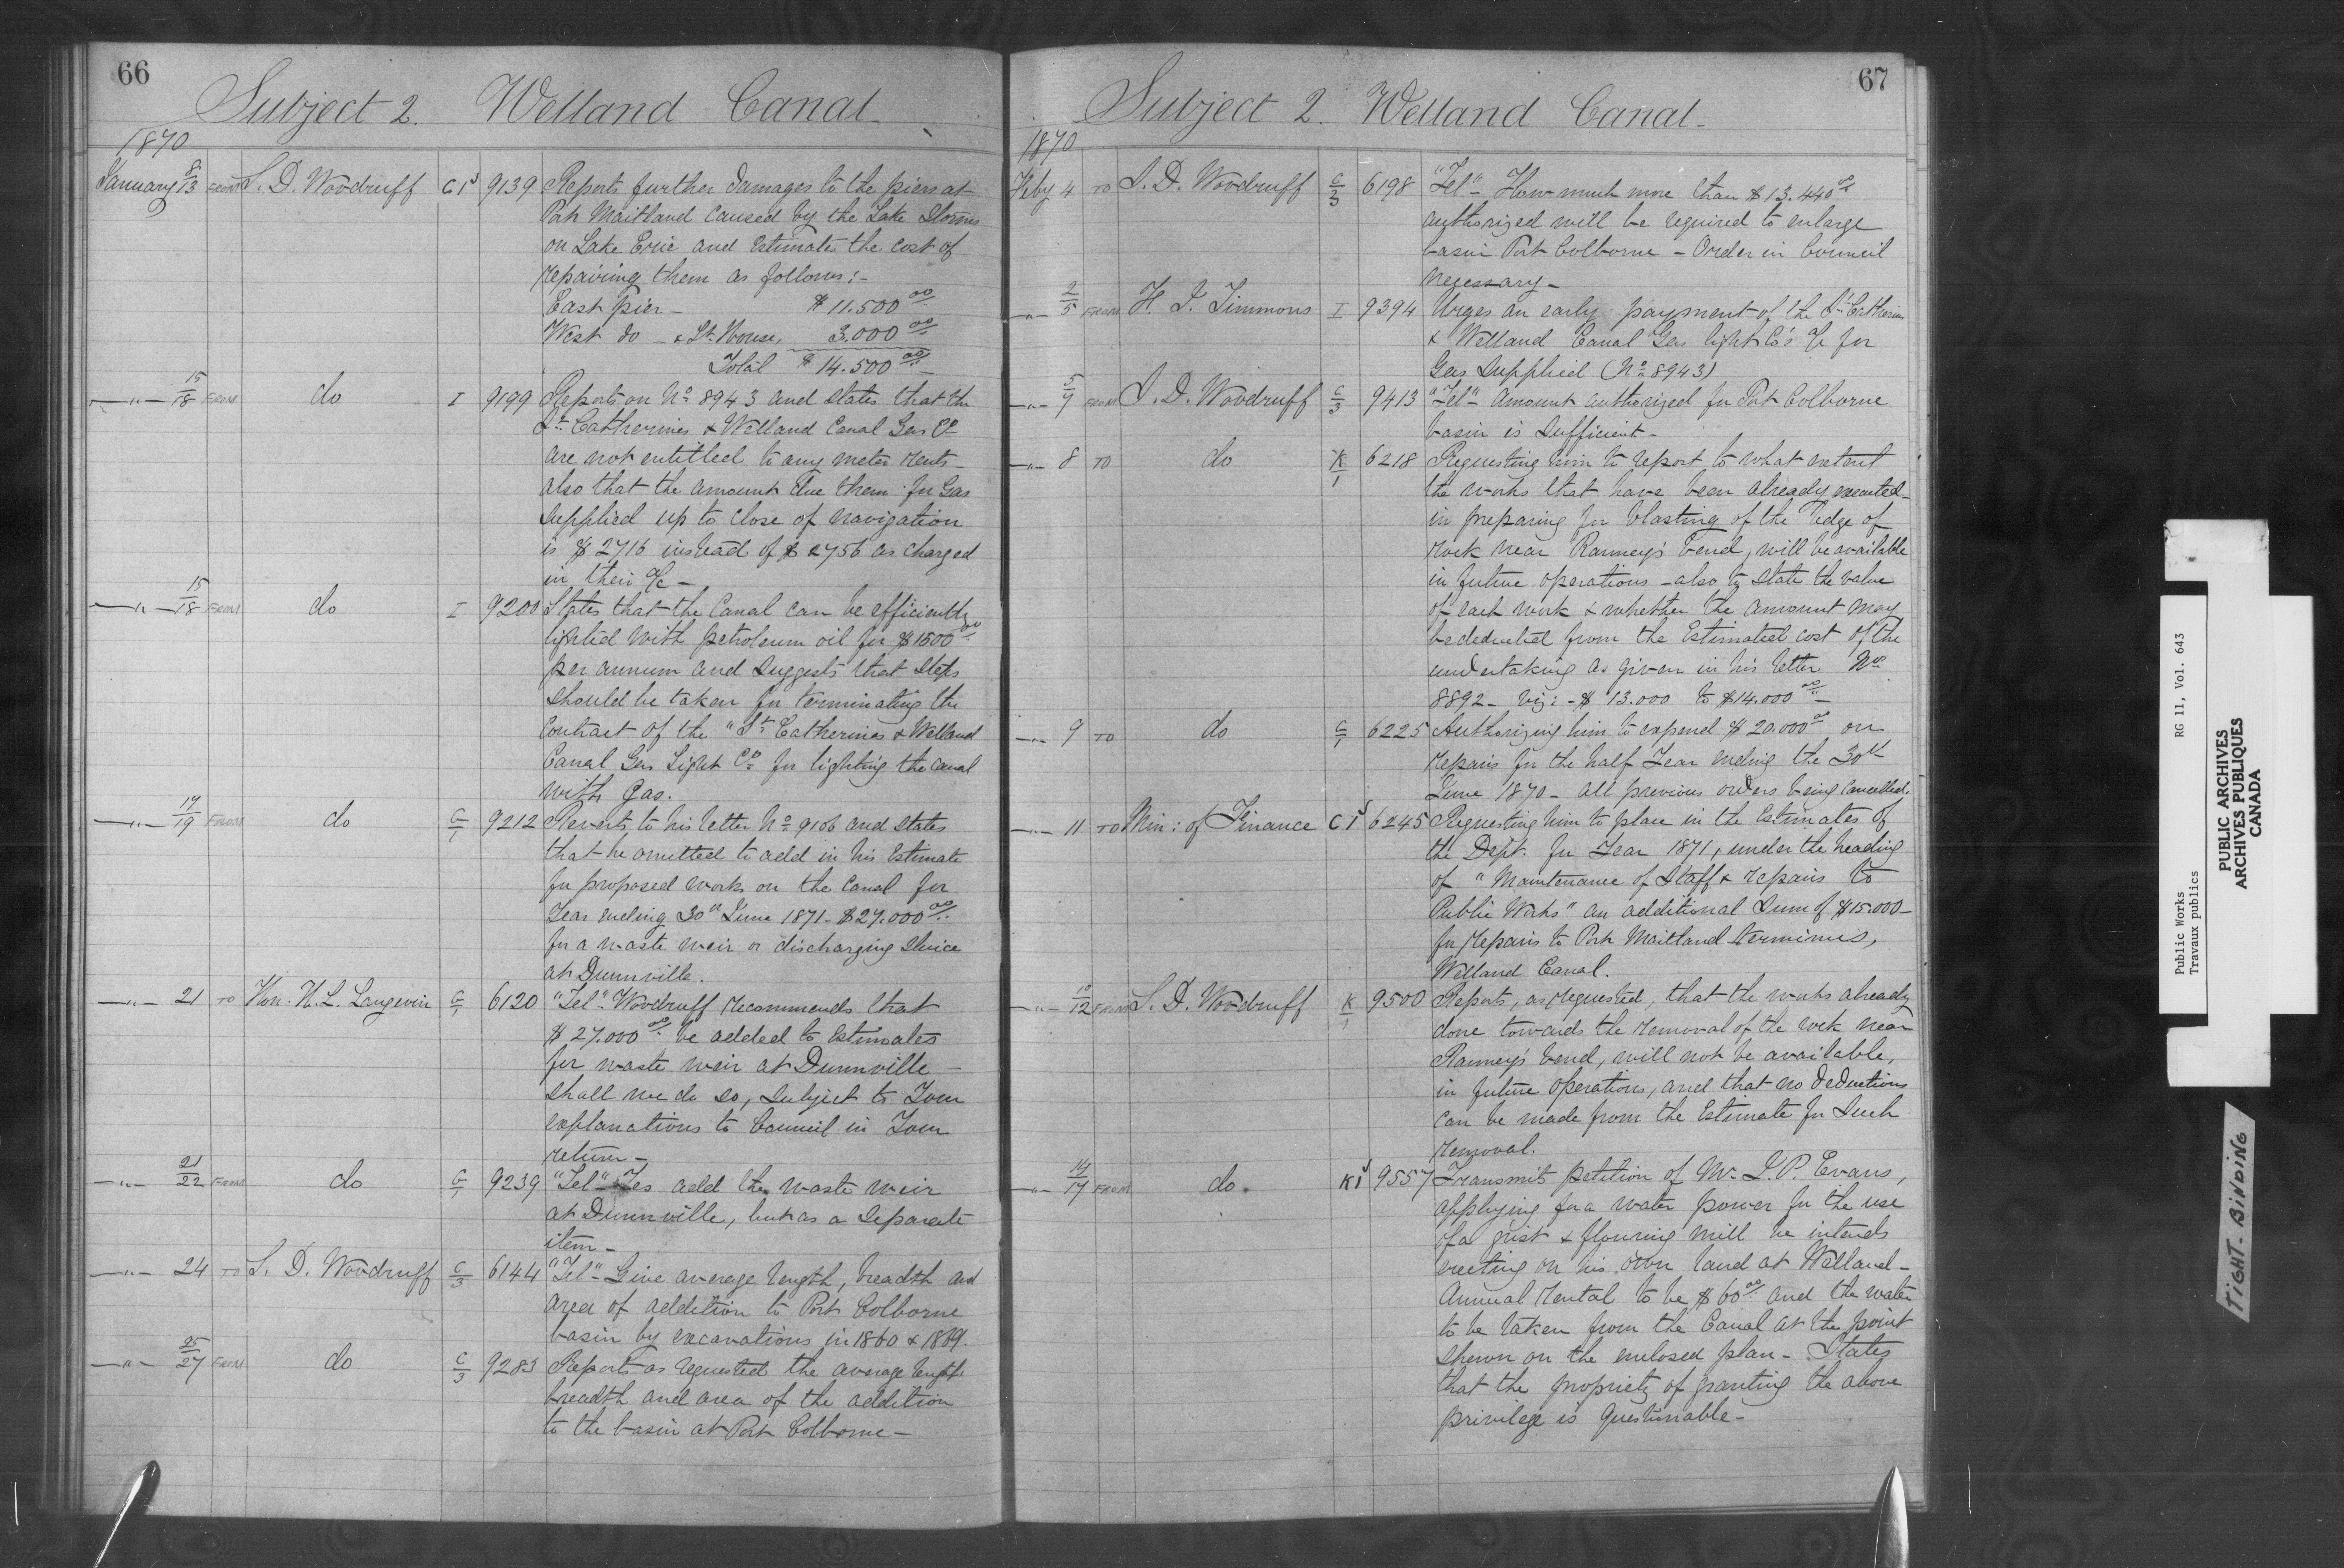 66
Subject 2. Welland Canal.
1870
January 8/13 FROM S. D. Woodruff C1 9139 Reports further damages to the piers at
Port Maitland caused by the Lake Storms
on Lake Erie and Estimates the cost of
repairing them as follows:-
East pier - $ 11.500 00/..
West do - & Lt. House, 3.000 00/..
Total $ 14.500 00/..
—"— 15/18 FROM do I 9199 Reports on No 8943 and states that the
St. Catherines & Welland Canal Gas Co
are not entitled to any meter rents -
also that the amount due them for Gas
supplied up to close of navigation
is $ 2716 instead of $ 2756 as charged
in their a/c -
—"— 15/18 FROM do I 9200 States that the Canal can be efficiently
lighted with petroleum oil for $1500 00
per annum and suggests that steps
should be taken for terminating the
contract of the "St. Catherines & Welland
Canal Gas Light Co for lighting the canal
with Gas.
—"— 17/19 FROM do G/1 9212 Reverts to his letter No 9106 and states
that he omitted to add in his Estimate
for proposed works on the Canal for
Year ending 30th June 1871 - $27.000 00/..
for a waste weir or discharging sluice
at Dunnville.
—"— 21 TO Hon. H. L. Langevin G/1 6120 "Tel" Woodruff recommends that
$ 27.000 00/.. be added to Estimates
for waste weir at Dunnville -
shall we do so, subject to Your
explanations to Council in Your
return -
—"— 21/22 FROM do G/1 9239 "Tel" Yes add the waste weir
at Dunnville, but as a separate
item -
—"— 24 TO S. D. Woodruff C/3 6144 "Tel" Give average length, breadth and
area of addition to Port Colborne
basin by excavations in 1860 & 1869.
—"— 25/27 FROM do C/3 9283 Reports as requested the average length
breadth and area of the addition
to the basin at Port Colborne -
67
Subject 2. Welland Canal.
1870
Feby 4 TO S. D. Woodruff C/3 6198 "Tel" - How much more than $13.440 00
authorized will be required to enlarge
basin Port Colborne - Order in Council
necessary -
—"— 2/5 FROM H. I. Timmons I 9394 Urges an early payment of the St. Catherines
& Welland Canal Gas light Co's a/c for
Gas supplied (No 8943)
—"— 5/7 FROM S. D. Woodruff C/3 9413 "Tel" Amount authorized for Port Colborne
basin is sufficient -
—"— 8 TO do K/1 6218 Requesting him to report to what extent
the works that have been already executed
in preparing for blasting of the ledge of
rock near Ranney's bend, will be available
in future operations - also to state the value
of each work & whether the amount may
be deducted from the Estimated cost of the
undertaking as given in his letter No
8892 - viz: - $ 13.000 to $14.000 00/..
—"— 9 TO do G/1 6225 Authorizing him to expend $ 20.000 00 on
repairs for the half Year ending the 30th
June 1870 - all previous orders being cancelled.
—"— 11 TO Min: of Finance C1 6245 Requesting him to place in the Estimates of
the Dept. for Year 1871, under the heading
of "Maintenance of Staff & repairs to
Public Works" an additional sum of $15.000 -
for repairs to Port Maitland terminus,
Welland Canal.
—"— 10/12 FROM S. D. Woodruff K/1 9500 Reports, as requested, that the works already
done towards the removal of the rock near
Ranney's bend, will not be available,
in future operations, and that no deductions
can be made from the Estimate for such
removal.
—"— 14/17 FROM do K1 9557 Transmits petition of Mr. L. P. Evans,
applying for a water power for the use
of a grist & flouring mill he intends
erecting on his own land at Welland -
Annual rental to be $60 00/.. and the water
to be taken from the Canal at the point
shewn on the enclosed plan - States
that the propriety of granting the above
privilege is questionable -
Public Works RG 11, Vol. 643
Travaux publics
PUBLIC ARCHIVES
ARCHIVES PUBLIQUES
CANADA
TIGHT-BINDING